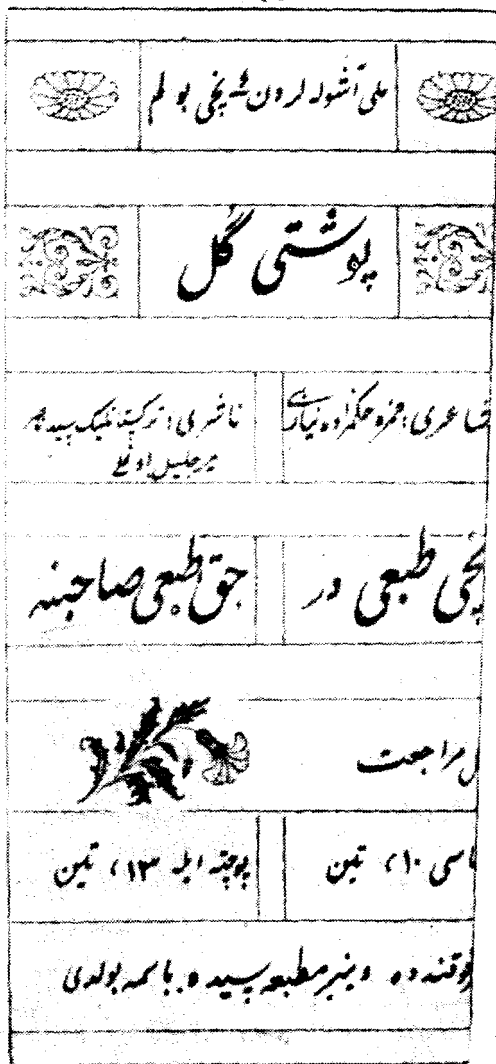 ملی آشوله لردن پنجی بولم
پوشتی گل
شاعری: حمزه حکیمزاده نیازی
ناشری:
میر جلیل اوغلی
نچی طبعی در
حق طبعی صاحبنه
مراجعت
اسی ۱۰، تین
پوچته ایله ۱۳، تین
مطبعه سیده باسمه بولدی